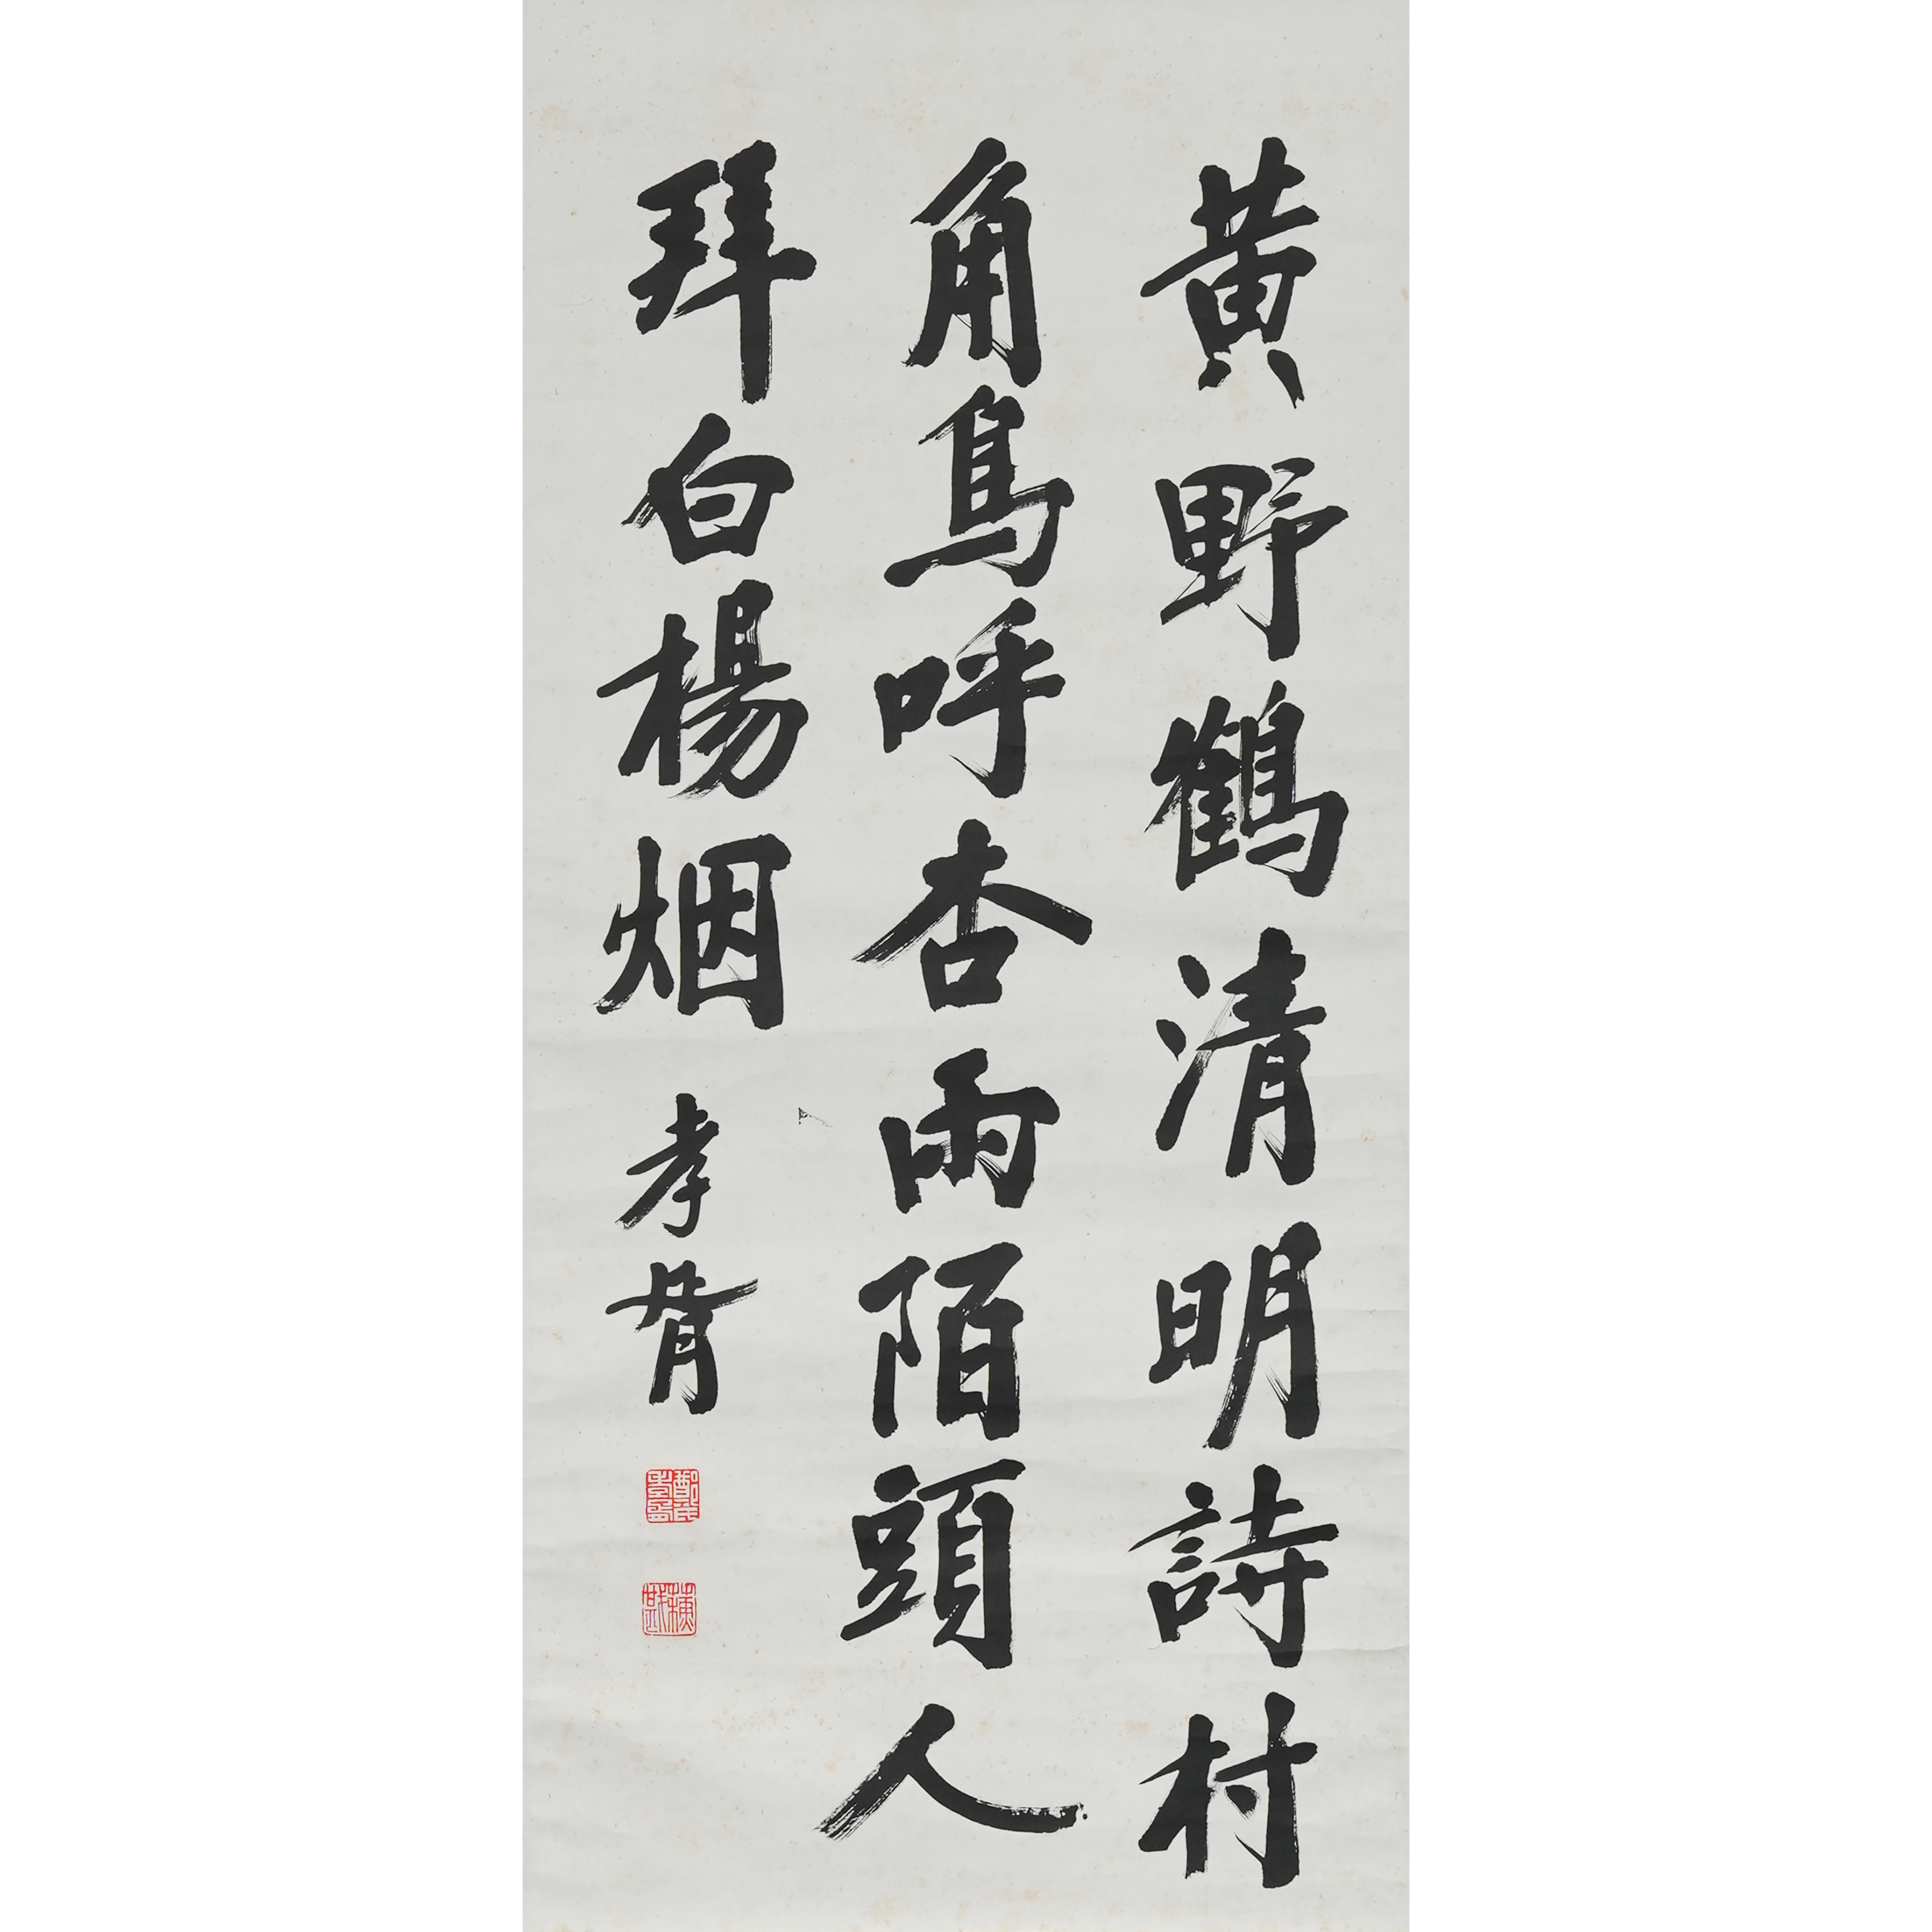 黄野鶴清明詩村
角鳥呼杏雨陌頭人
拜白楊烟
孝胥